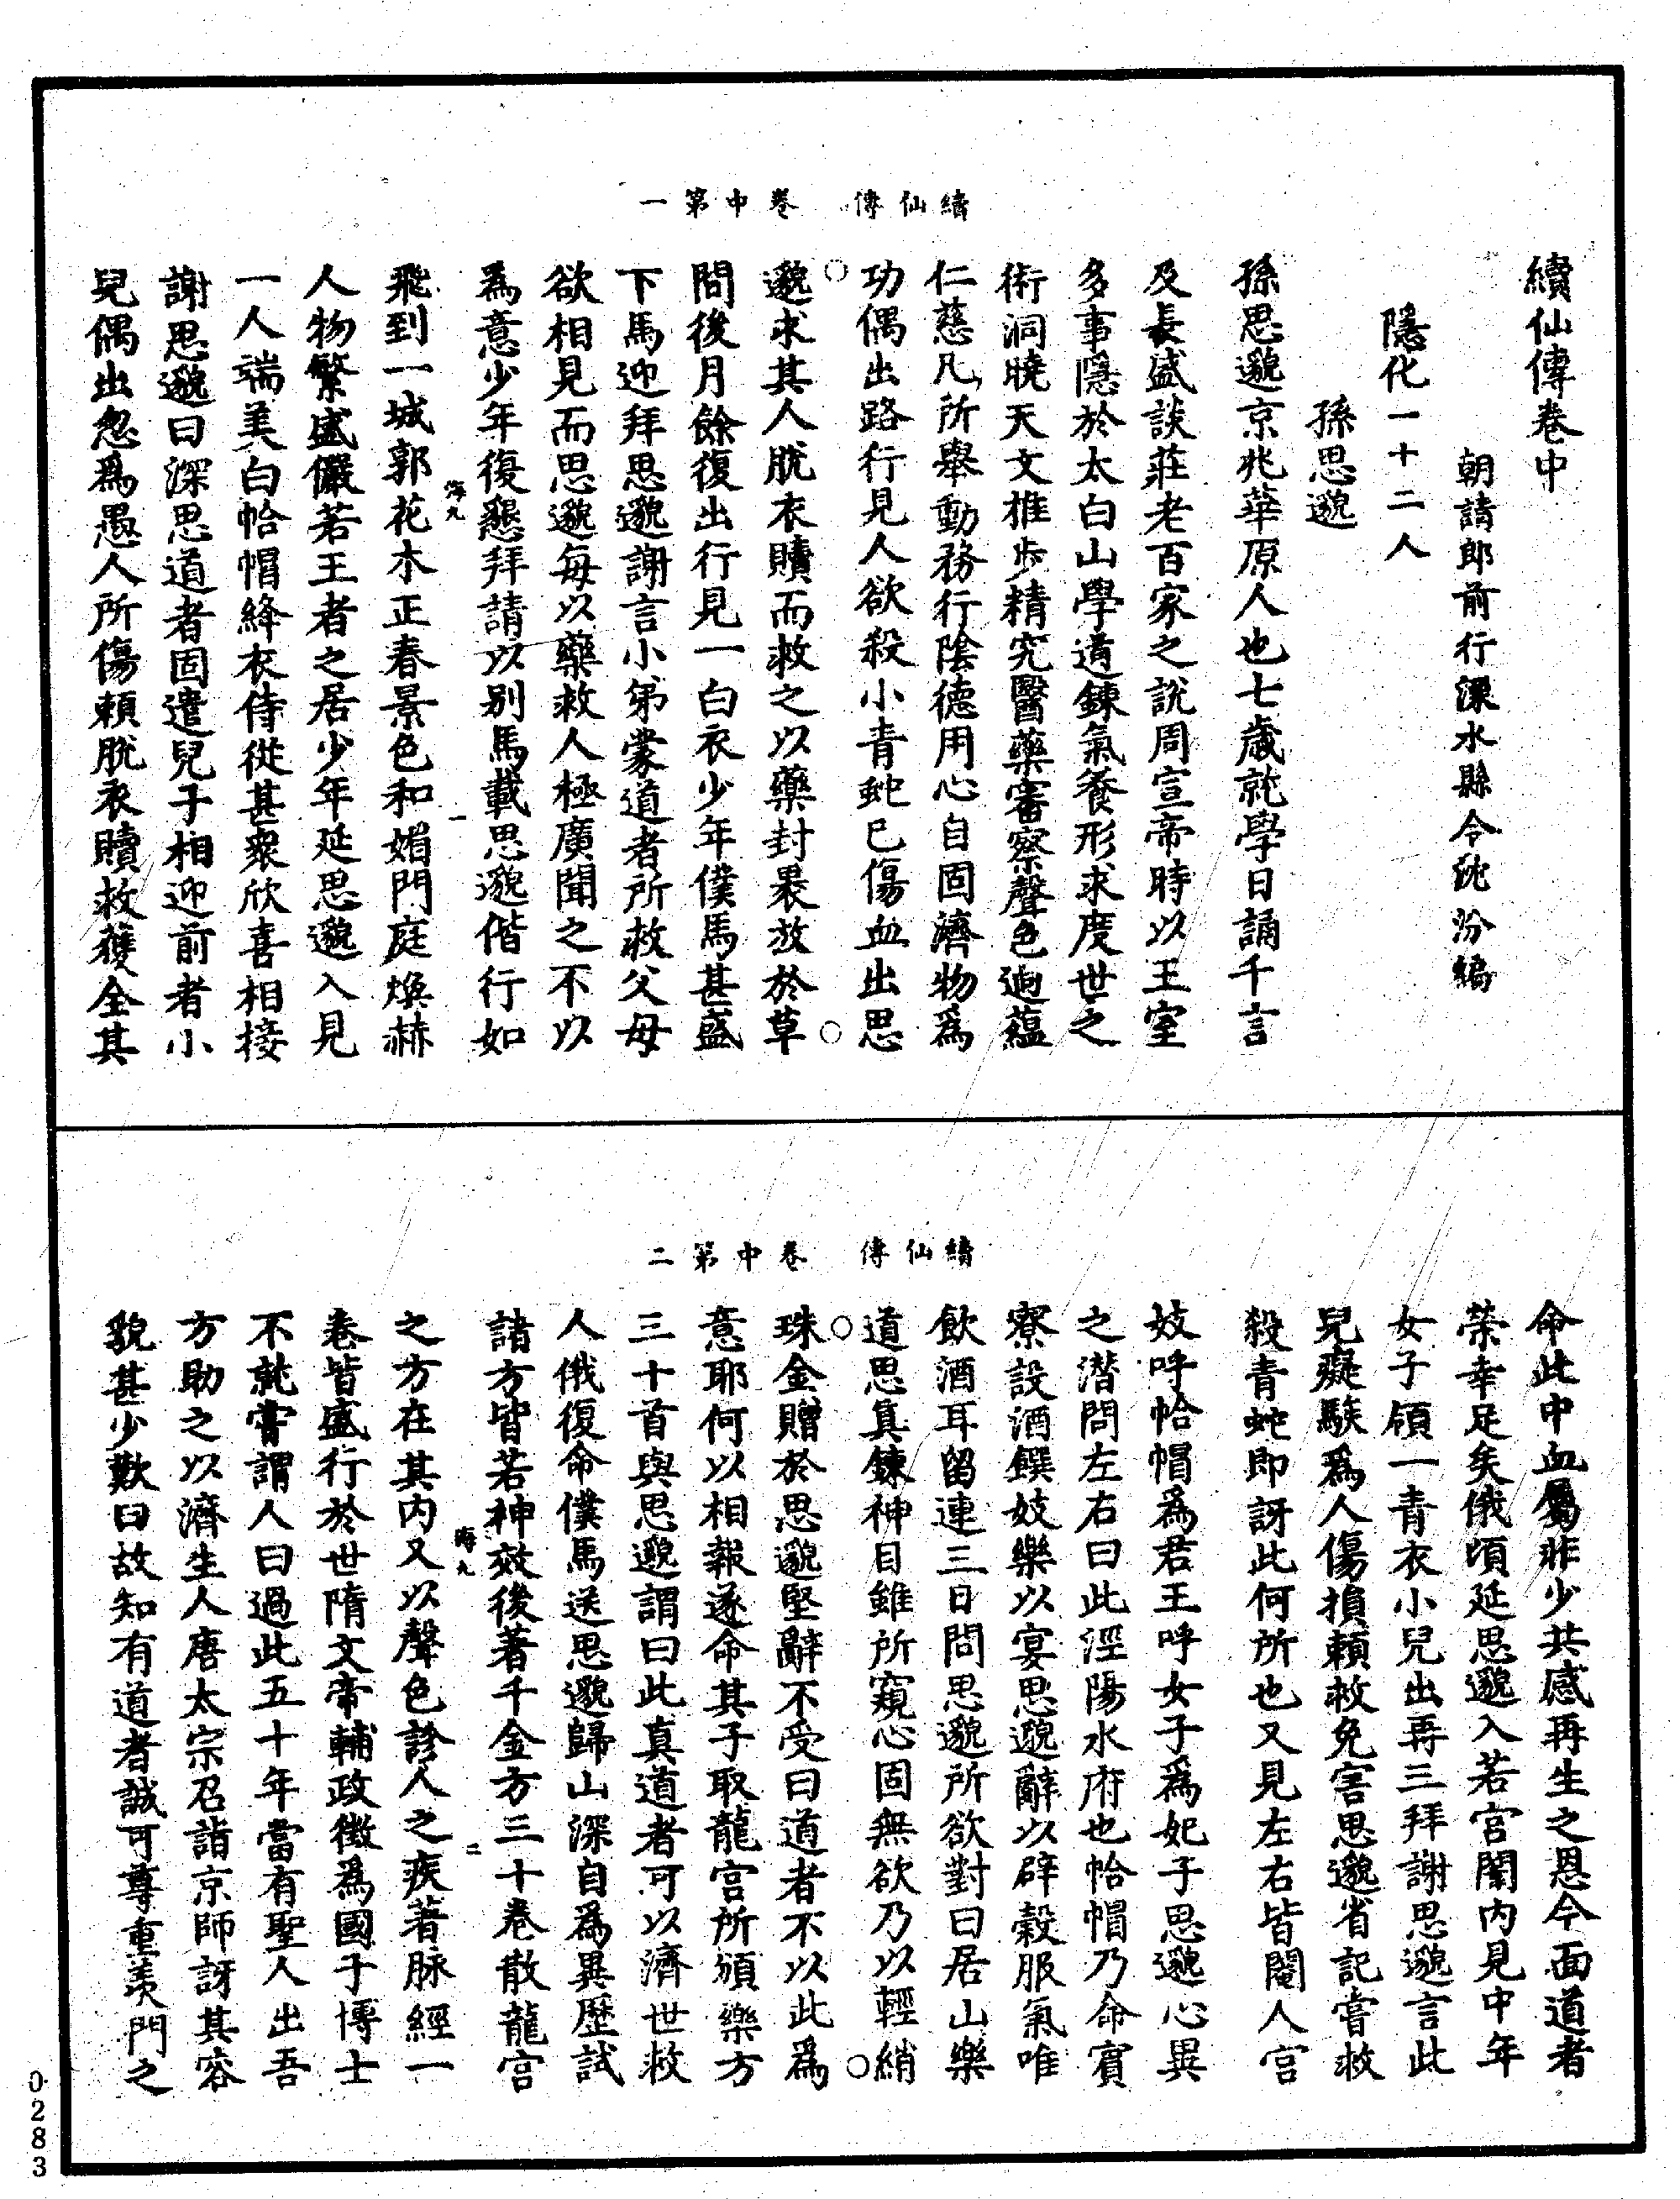 續仙傳　卷中第一
續仙傳卷中
朝請郎前行溧水縣令沈汾編
隱化一十二人
孫思邈
孫思邈京兆華原人也七歲就學日誦千言
及長盛談莊老百家之說周宣帝時以王室
多事隱於太白山學道鍊氣養形求度世之
術洞曉天文推步精究醫藥審察聲色迥蘊
仁慈凡所舉動務行陰德用心自固濟物爲
功偶出路行見人欲殺小青蛇已傷血出思
邈求其人脫衣贖而救之以藥封裹放於草
間後月餘復出行見一白衣少年僕馬甚盛
下馬迎拜思邈謝言小弟蒙道者所救父母
欲相見而思邈每以藥救人極廣聞之不以
為意少年復懇拜請以别馬載思邈偕行如
海九　一
飛到一城郭花木正春景色和媚門庭煥赫
人物繁盛儼若王者之居少年延思邈入見
一人端美白帢帽絳衣侍從甚衆欣喜相接
謝思邈曰深思道者固遣兒子相迎前者小
兒偶出忽爲愚人所傷賴脫衣贖救獲全其
續仙傳　卷中第二
命此中血屬非少共感再生之恩今面道者
榮幸足矣俄頃延思邈入若宮闈内見中年
女子領一青衣小兒出再三拜謝思邈言此
兒癡騃爲人傷損賴救免害思邈省記嘗救
殺青蛇即訝此何所也又見左右皆閹人宮
妓呼帢帽爲君王呼女子爲妃子思邈心異
之潛問左右曰此涇陽水府也帢帽乃命賓
寮設酒饌妓樂以宴思邈辭以辟穀服氣唯
飲酒耳留連三日問思邈所欲對曰居山樂
道思真鍊神目雖所窺心固無欲乃以輕綃
珠金贈於思邈堅辭不受曰道者不以此爲
意耶何以相報遂命其子取龍宮所頒藥方
三十首與思邈謂曰此真道者可以濟世救
人俄復命僕馬送思邈歸山深自爲異歷試
諸方皆若神效後著千金方三十卷散龍宮
海九　二
之方在其内又以聲色診人之疾著脉經一
卷皆盛行於世隋文帝輔政徵爲國子博士
不就嘗謂人曰過此五十年當有聖人出吾
方助之以濟生人唐太宗召詣京師訝其容
貌甚少歎曰故知有道者誠可尊重羨門之
0283